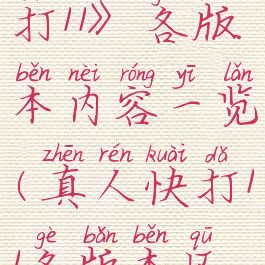 打11》 各版
běn nèi róng yī lǎn
本内容一览
zhēn rén kuài dǎ
(真人快打1
gè bǎn běn qū